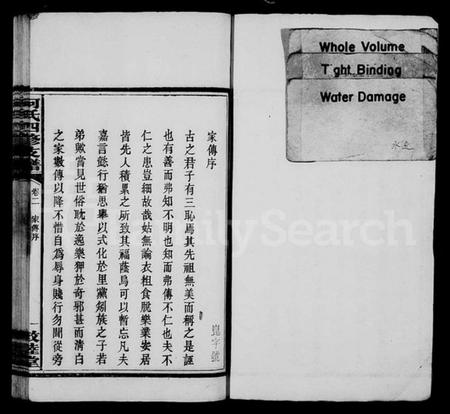 家傳序
古之君子有三恥焉其先祖無美而稱之是誣
也有善而弗知不明也知而弗傳不仁也夫不
仁之患豈細故哉姑無論衣租食脫樂業安居
皆先人積累之所致其福蔭烏可以暫忘凡夫
嘉言懿行猶思舉以式化於里黨頌族之子若
弟歟嘗見世俗耽於逸樂狎於奇邪甚而清白
之家數傳以降不惜自為辱身賤行勿聞從旁
何氏四修支譜
卷二
家傳序
一
敦睦堂
崑字號
Whole Volume
Tight Binding
Water Damage
水走
FamilySearch